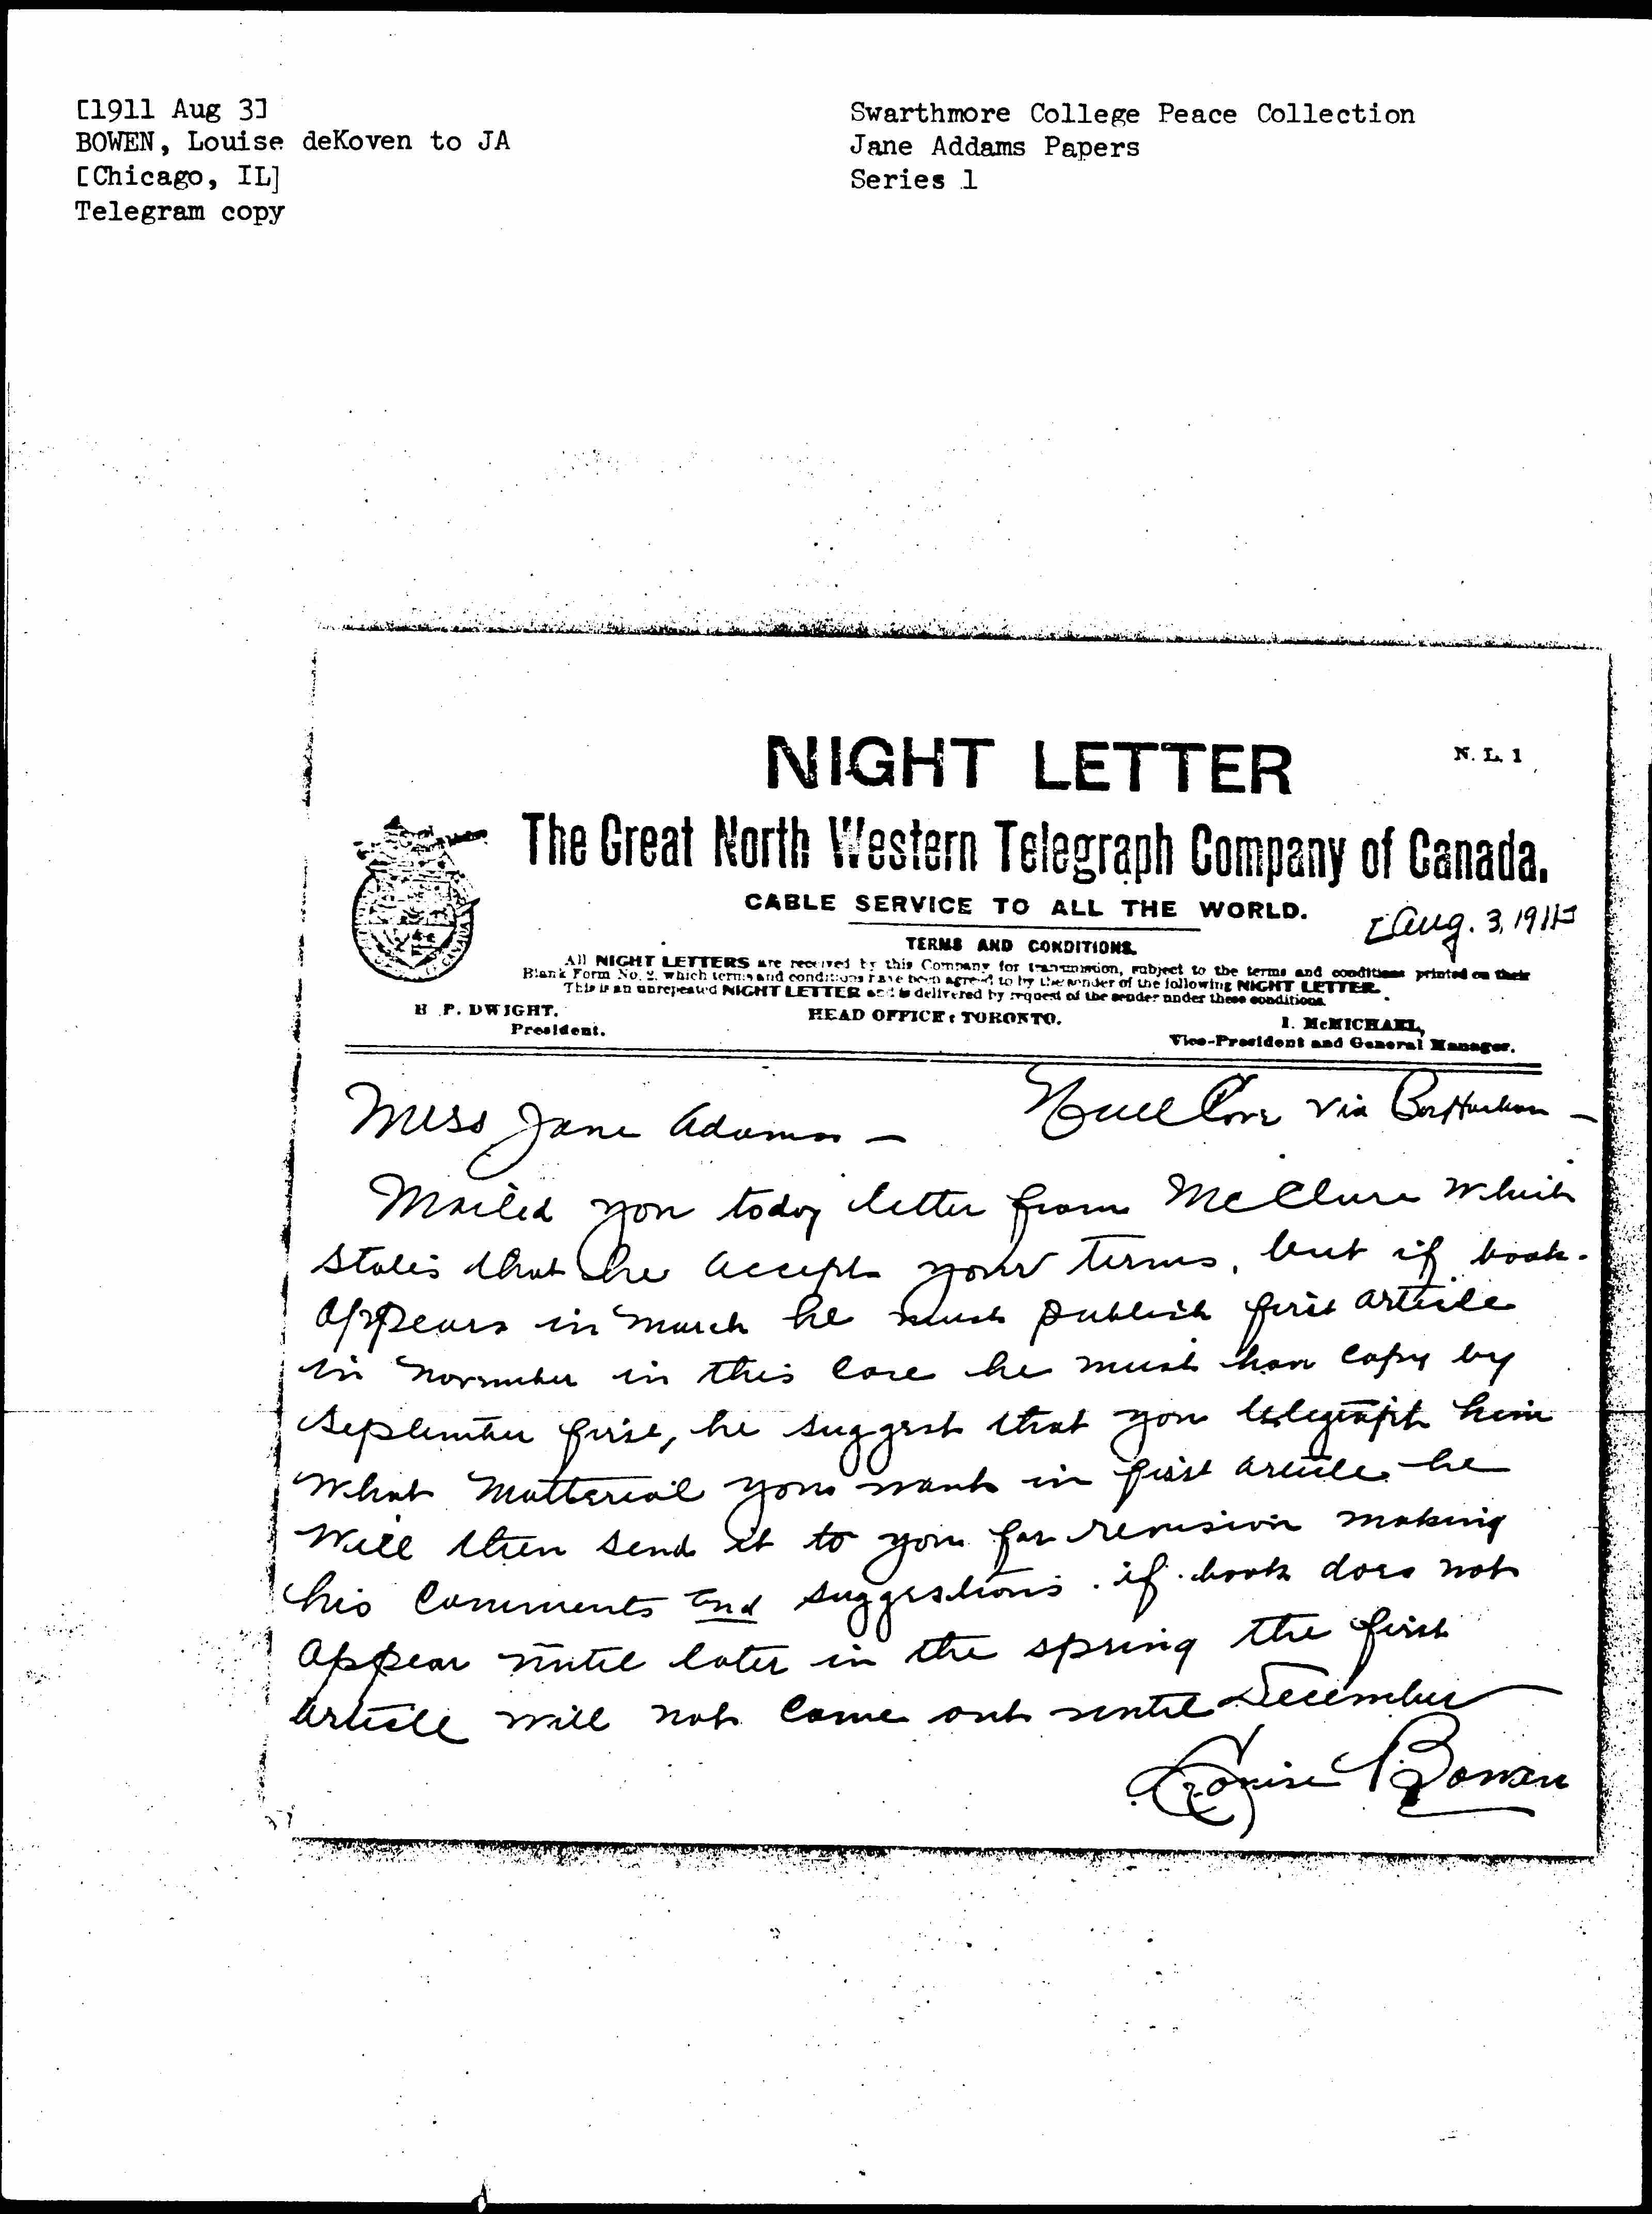 [1911 Aug 3]
BOWEN, Louise deKoven to JA
[Chicago, IL]
Telegram copy
Swarthmore College Peace Collection
Jane Addams Papers
Series 1
NIGHT LETTER
N. L. 1
The Great North Western Telegraph Company of Canada.
CABLE SERVICE TO ALL THE WORLD.
[Aug. 3, 1911]
TERMS AND CONDITIONS.
All NIGHT LETTERS are received by this Company for transmission, subject to the terms and conditions printed on their
Blank Form No. 2, which terms and conditions have been agreed to by the sender of the following NIGHT LETTER.
This is an unrepeated NIGHT LETTER and is delivered by request of the sender under these conditions.
H. P. DWIGHT,
President.
HEAD OFFICE: TORONTO.
I. McMICHAEL,
Vice-President and General Manager.
Miss Jane Adams -
Hull Cove via Bar Harbor -
Mailed you today letter from McClure which
states that he accepts your terms, but if book
appears in March he must publish first article
in November in this case he must have copy by
September first, he suggest that you telegraph him
what matterial you want in first article he
will then send it to you for revision making
his comments and suggestions. if book does not
appear until later in the spring the first
article will not come out until December
Louise Bowen